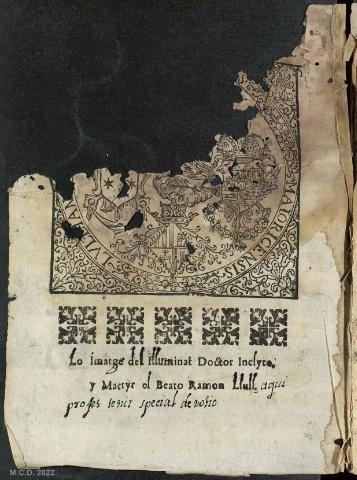 LVLIAN MAIORICENSIS
Lo Imatge del Illuminat Doctor Inclyto,
y Martyr ol Beato Ramon Llull, aqui
profes tenir special devotio
M.C.D. 2022